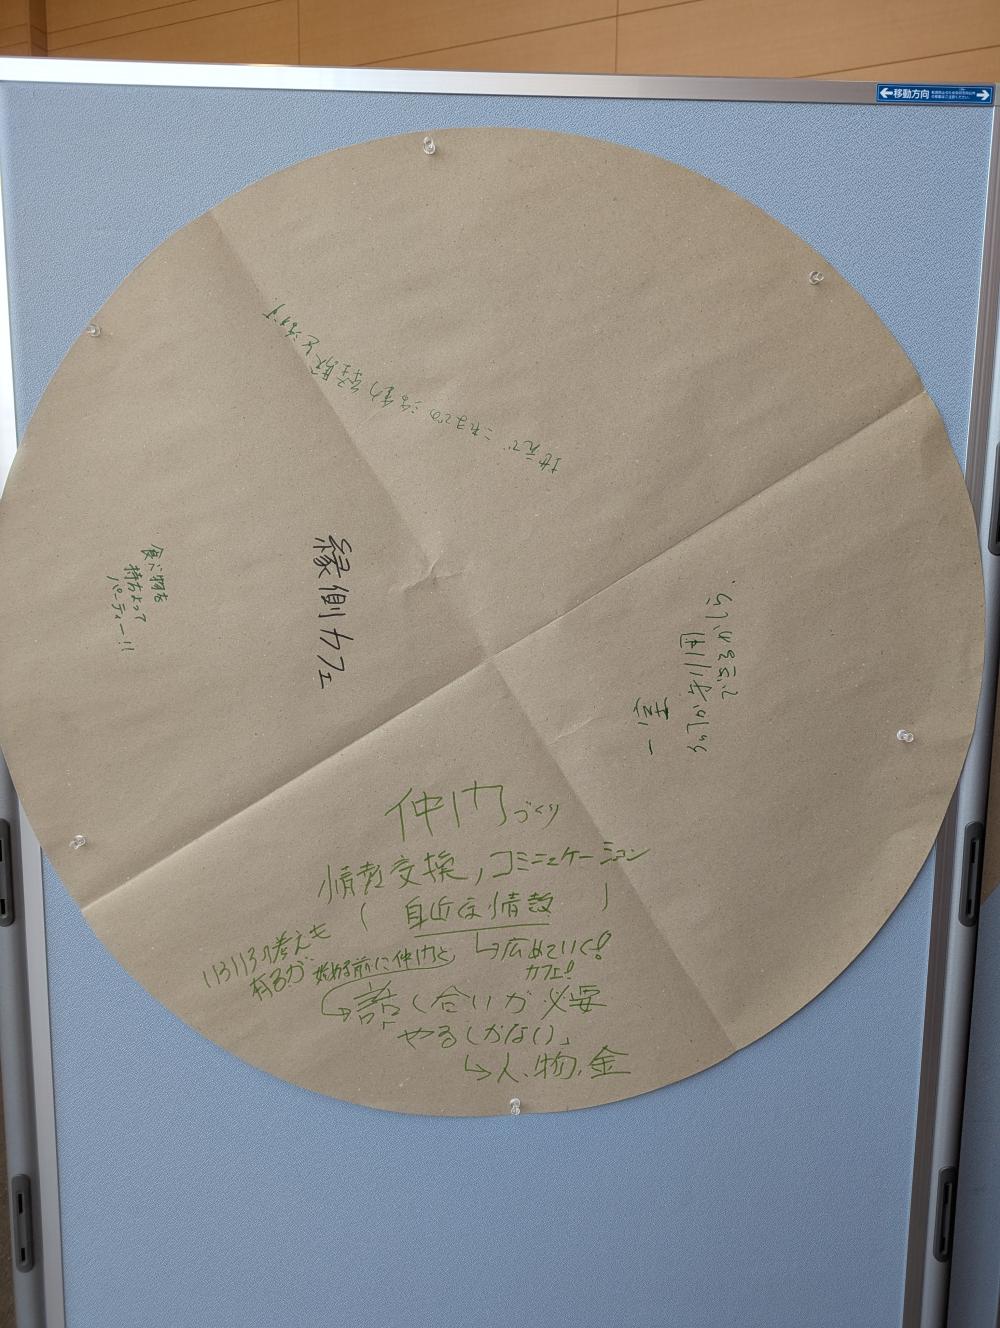 移動方向
地元でこれまでの活動経験を活かす。
縁側カフェ
食べ物を
持ちよって
パーティー!!
できるかしら、
仲間づくり
情報交換,コミニュケーション
(身近な情報)
↳広めていく!
カフェ!
いろいろ考えも
有るが、始める前に仲間と
話し合いが必要
やるしかない」
↳人.物.金